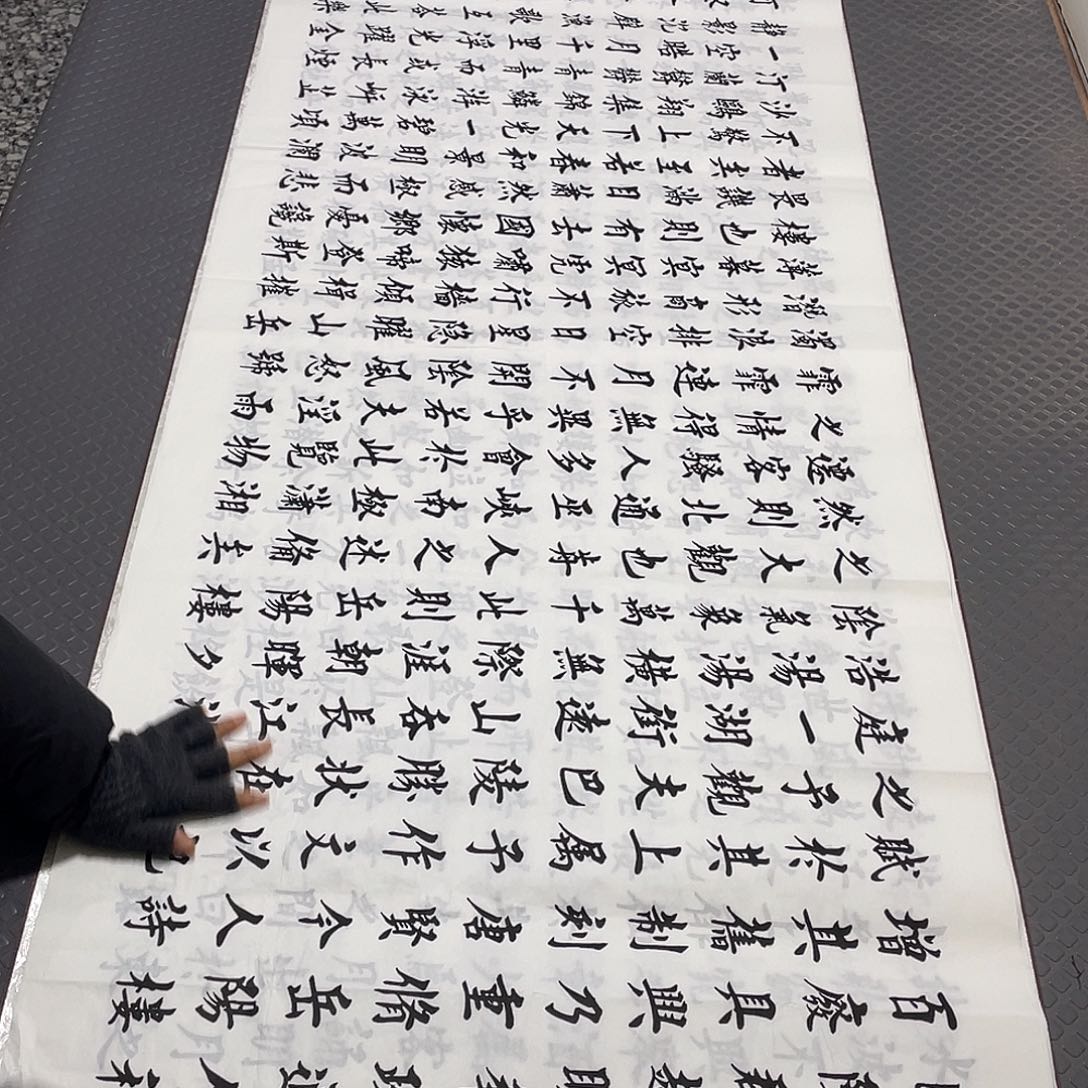 百廢具興乃重修岳陽樓
增其舊制刻唐賢今人詩
賦於其上屬予作文以記
之予觀夫巴陵勝狀在
庭一湖銜遠山吞長江浩
浩湯湯橫無際涯朝暉夕
陰氣象萬千此則岳陽樓
之大觀也前人之述備矣
然則北通巫峽南極瀟湘
遷客騷人多會於此覽物
之情得無異乎若夫淫雨
霏霏連月不開陰風怒號
濁浪排空日星隱曜山岳
潛形商旅不行檣傾楫摧
薄暮冥冥虎嘯猿啼登斯
樓也則有去國懷鄉憂讒
畏譏滿目蕭然感極而悲
者矣至若春和景明波瀾
不驚上下天光一碧萬頃
沙鷗翔集錦鱗游泳岸芷
汀蘭鬱鬱青青而或長煙
一空皓月千里浮光躍金
靜影沉璧漁歌互答此樂